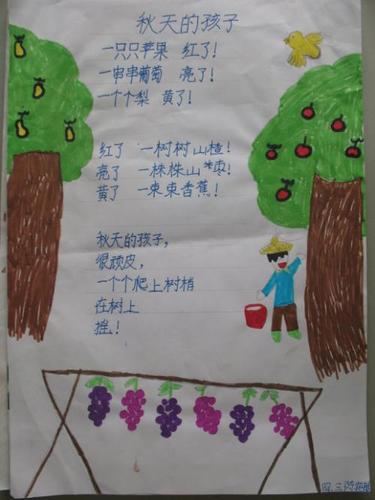 秋天的孩子
一只只苹果 红了!
一串串葡萄 亮了!
一个个梨 黄了!
红了 一树树山楂!
亮了 一株株山枣!
黄了 一束束香蕉!
秋天的孩子,
很顽皮,
一个个爬上树梢
在树上
摇!
四.三